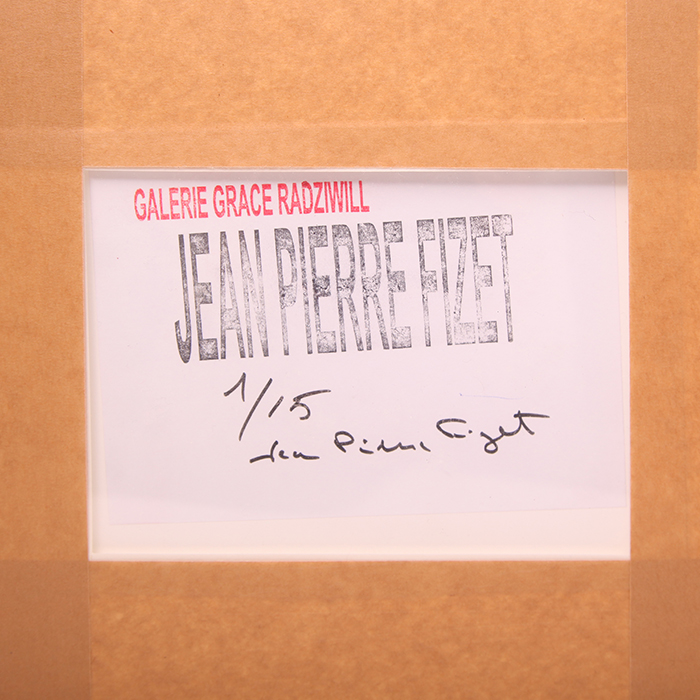 GALERIE GRACE RADZIWILL
JEAN PIERRE FIZET
1/15
Jean Pierre Fizet